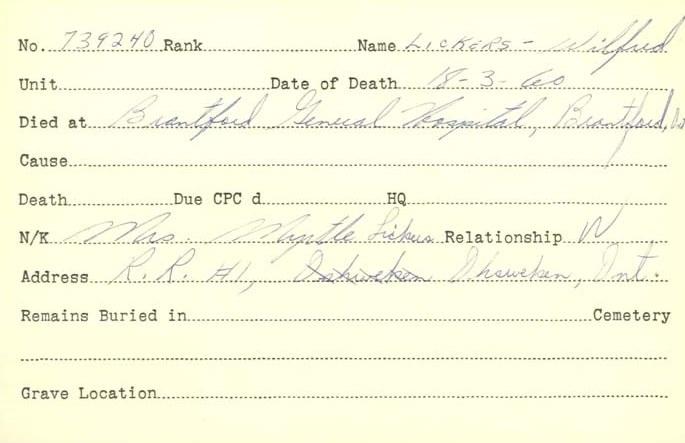 No. 739240 Rank Name LICKERS - Wilfred
Unit Date of Death 18-3-60
Died at Brantford General Hospital, Brantford, Ont
Cause
Death Due CPC d HQ
N/K Mrs. Myrtle Lickers Relationship W
Address R.R. #1, Oshweken Ohsweken, Ont.
Remains Buried in Cemetery
Grave Location